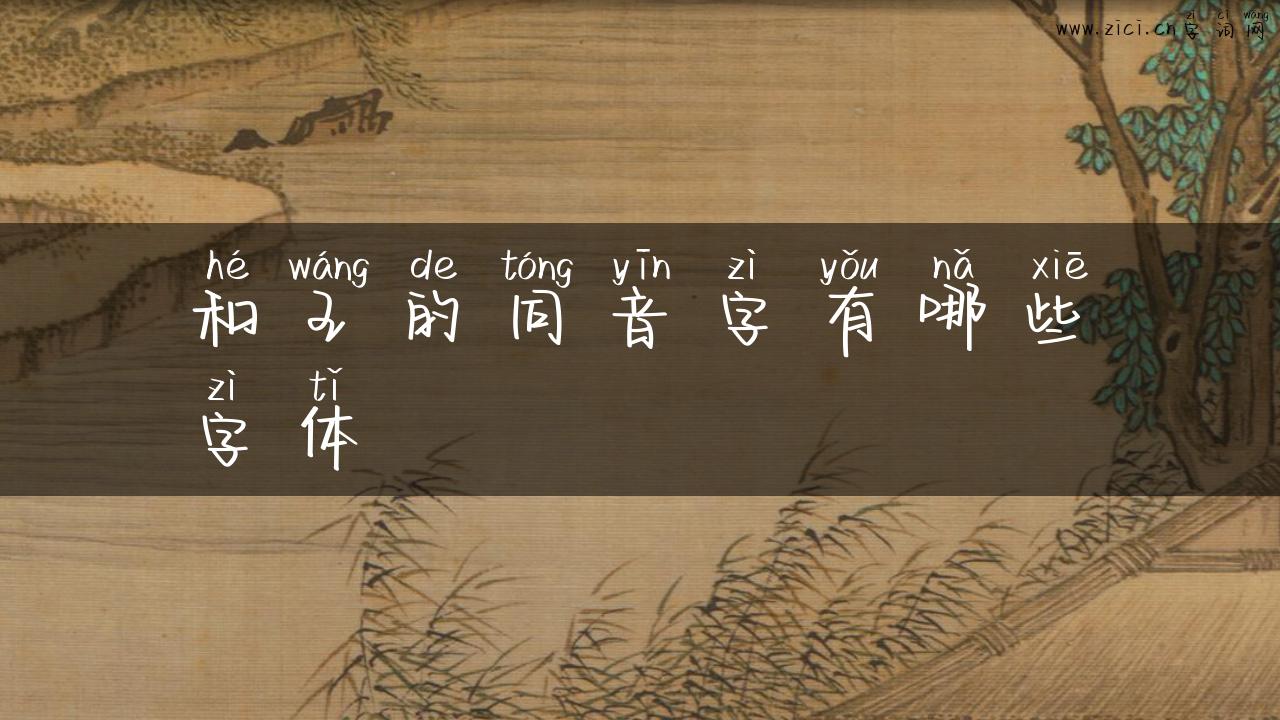 zì cí wǎng
www.zici.cn字词网
hé wáng de tóng yīn zì yǒu nǎ xiē
和王的同音字有哪些
zì tǐ
字体